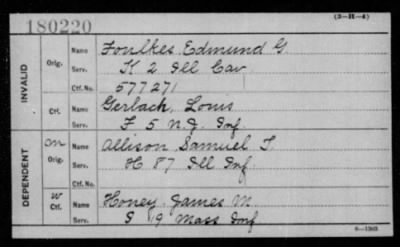 180220
(3-H-4)
INVALID
Orig.
Name Foulkes Edmund G.
Serv. K 2 Ill Cav
Ctf. No. 577271
Ctf.
Name Gerlach, Louis
Serv. F 5 N.J. Inf
DEPENDENT
m
Orig.
Name Allison Samuel T.
Serv. H 87 Ill Inf.
Ctf. No.
W
Ctf.
Name Honey James M.
Serv. 19 Mass Inf